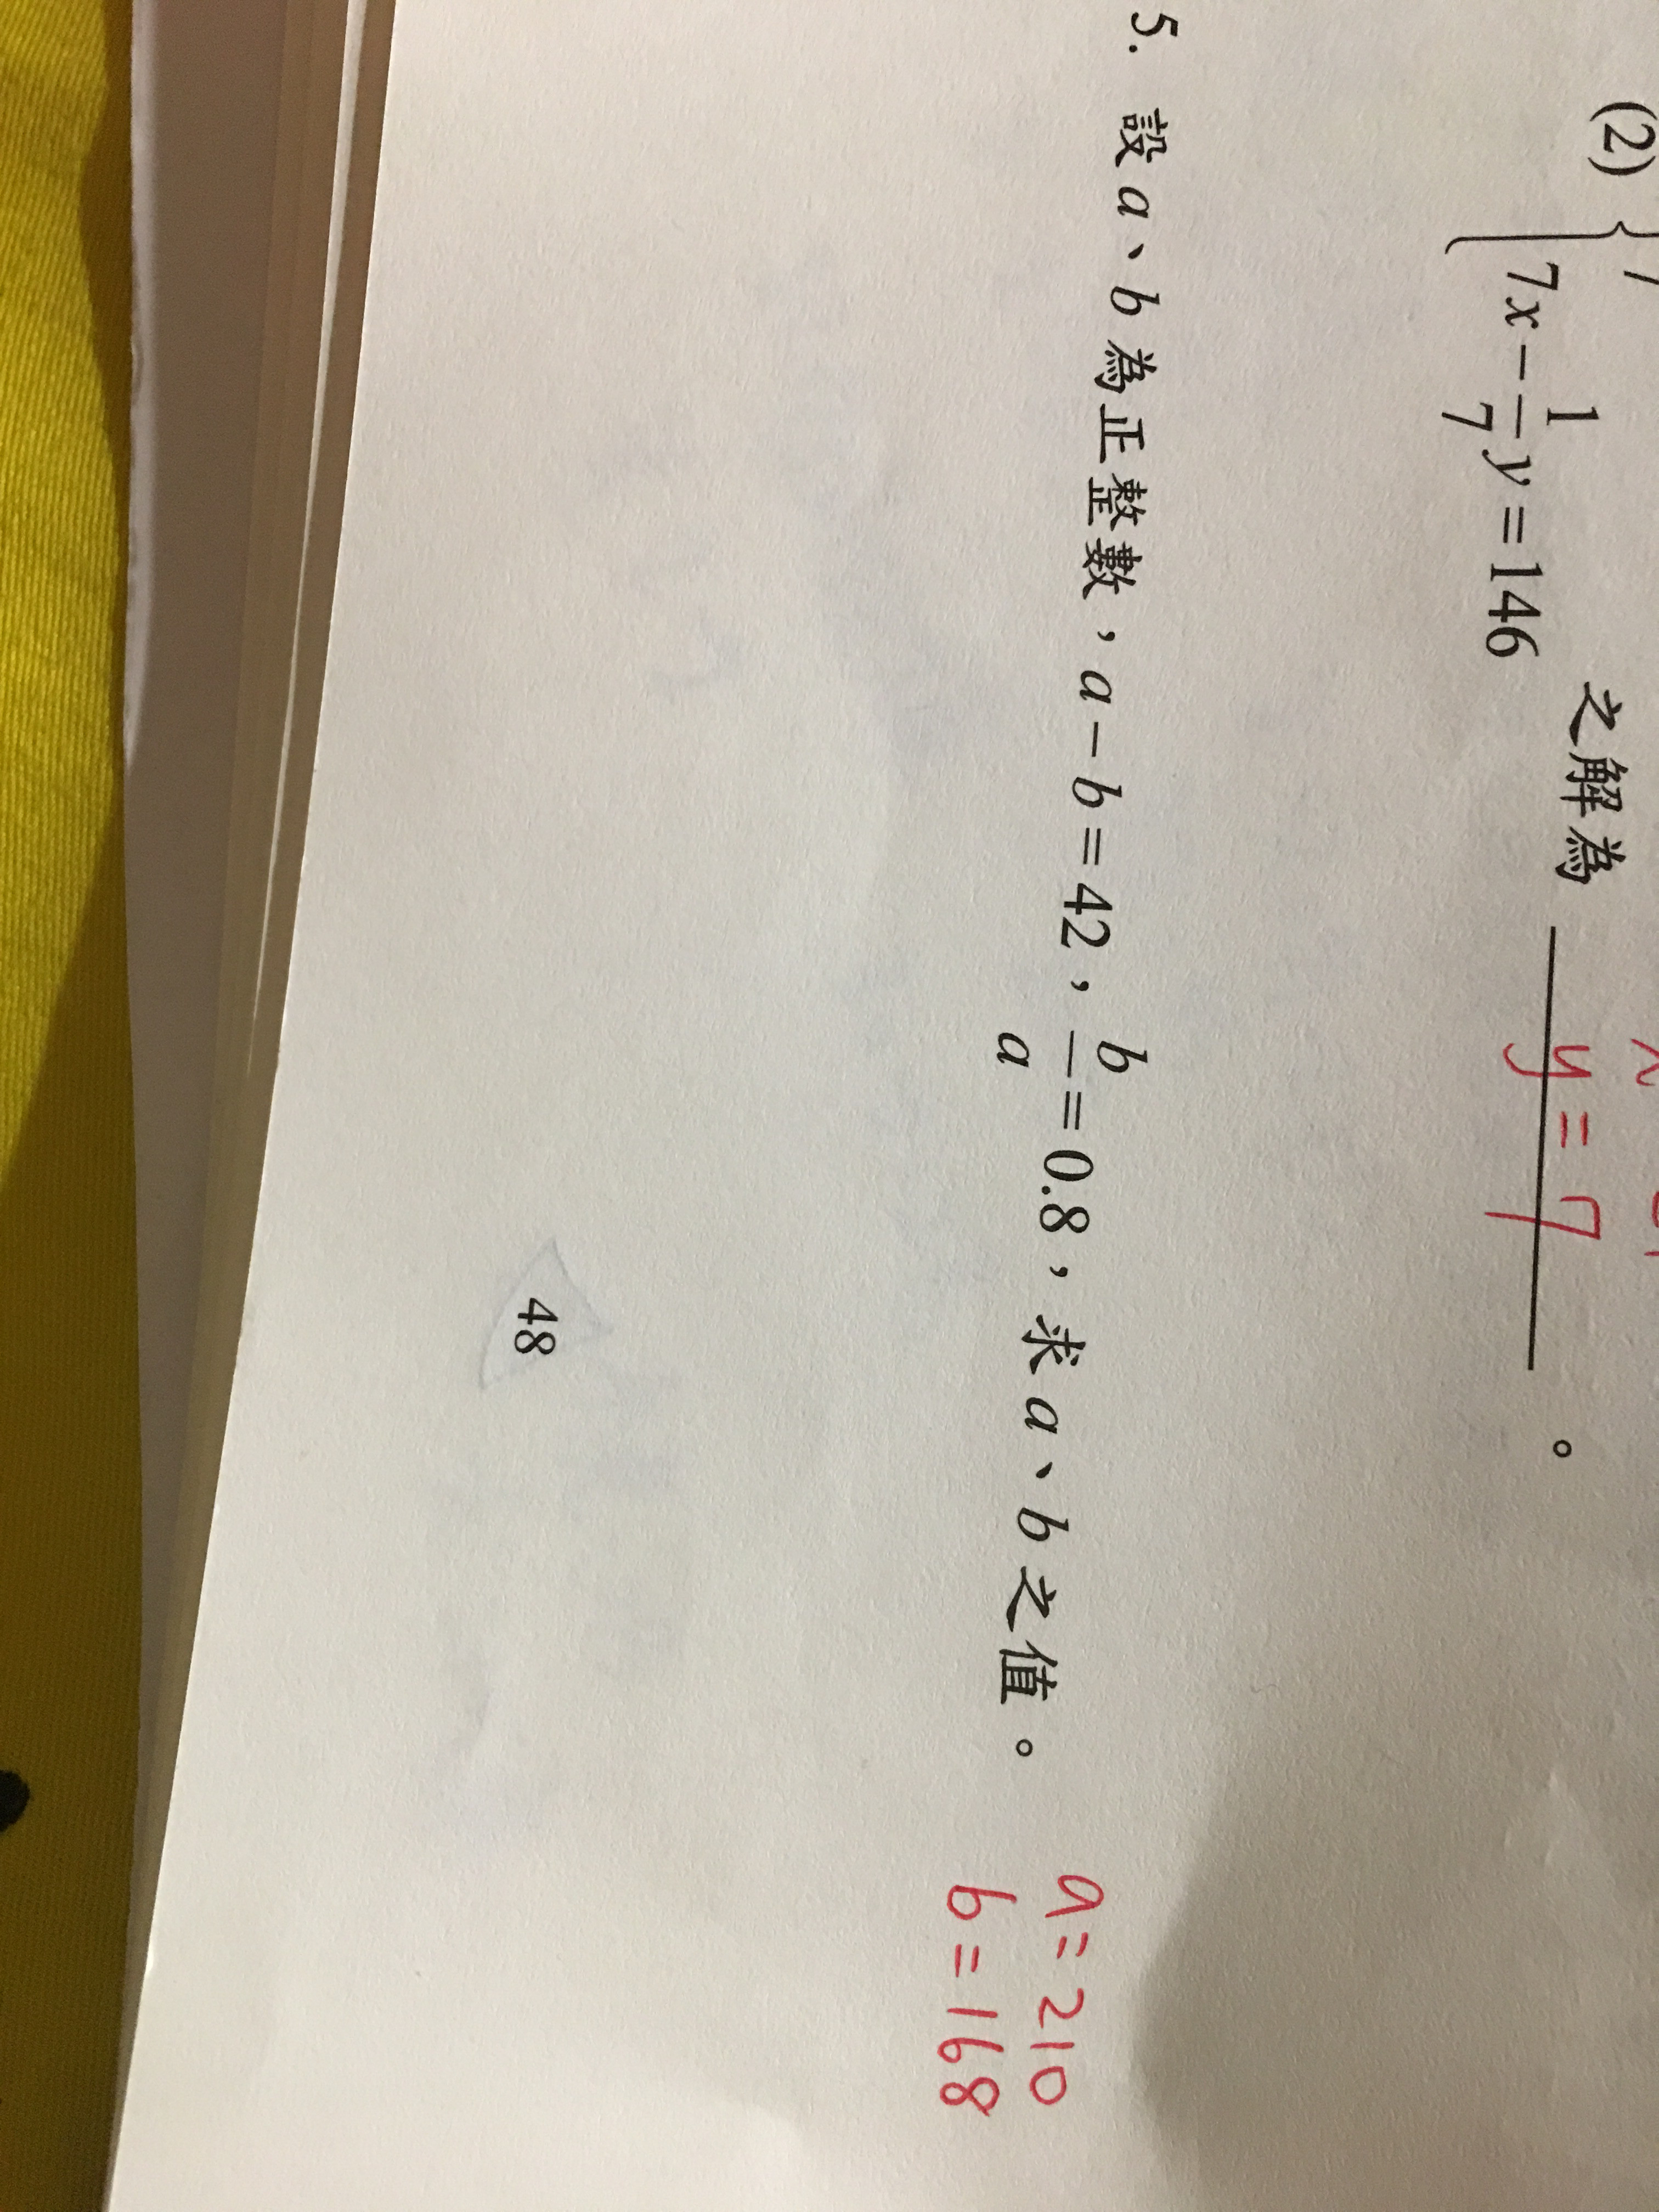 (2)
7x-\frac{1}{7}y=146 之解為 y=7 。
5. 設 a、b 為正整數，a-b=42，\frac{b}{a}=0.8，求 a、b 之值。
a=210
b=168
48